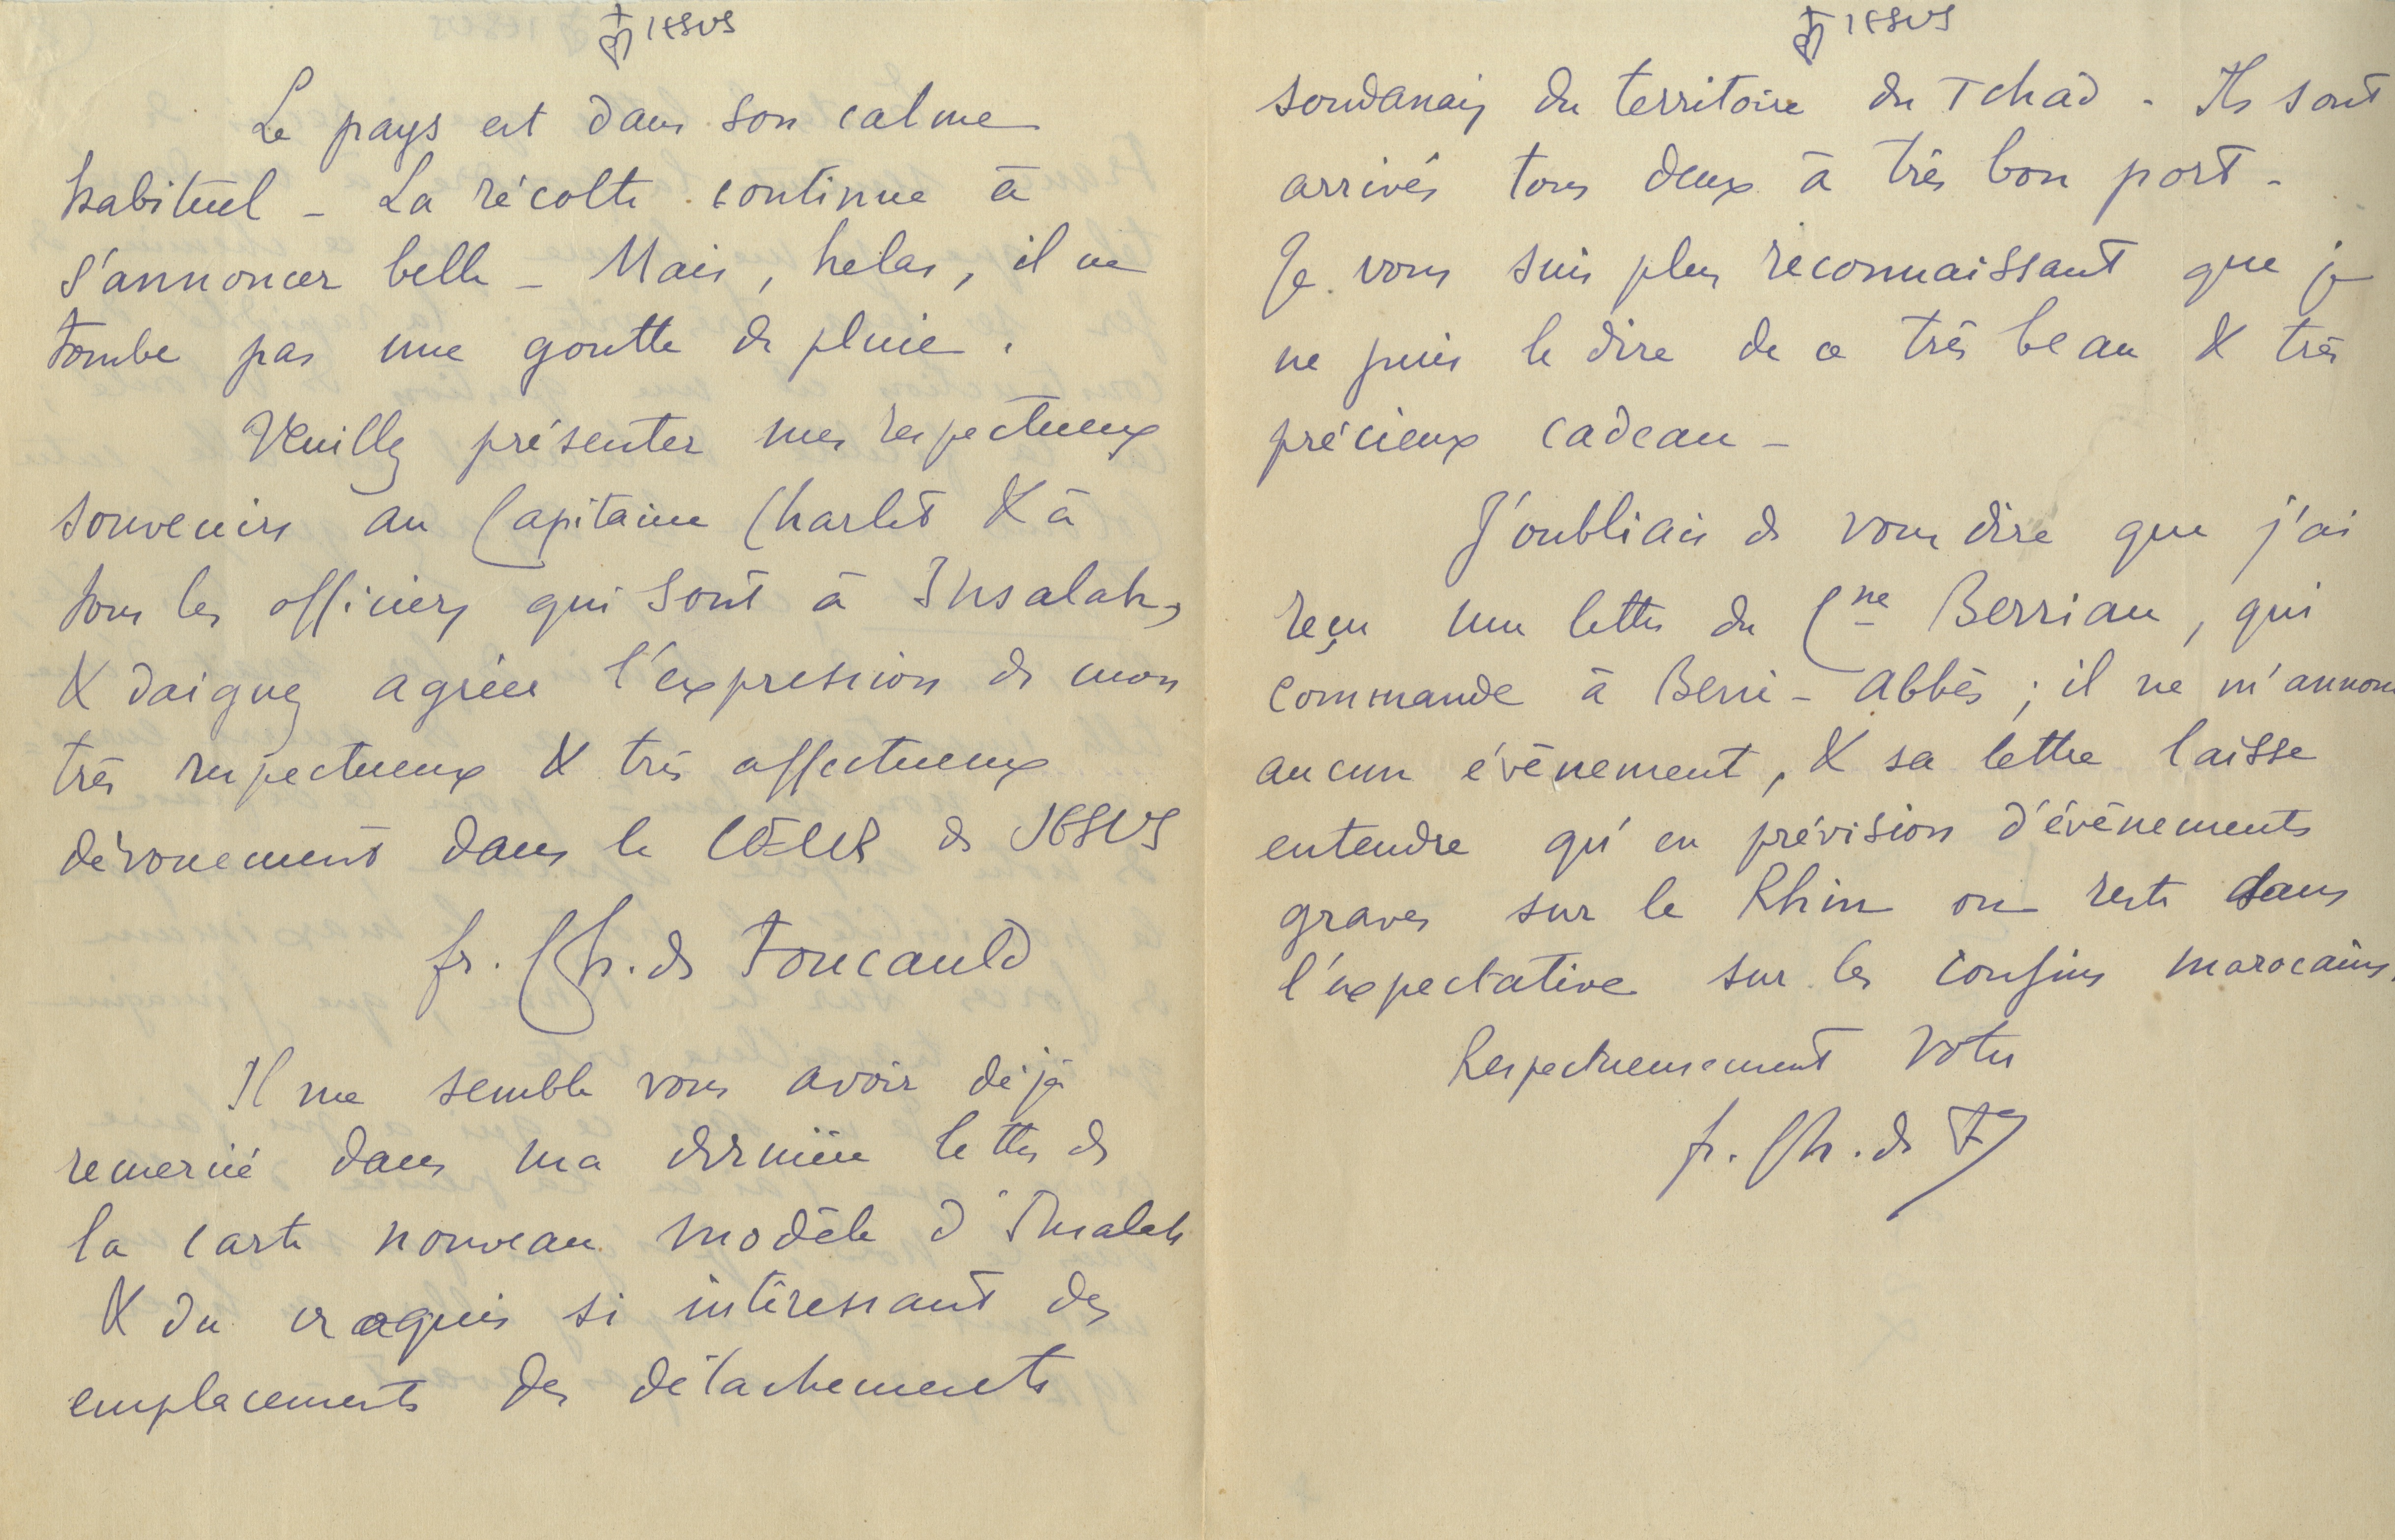 JESUS
Le pays est dans son calme
habituel – La récolte continue à
s'annoncer belle – Mais, helas, il ne
tombe pas une goutte de pluie.
Veuillez présenter mes respectueux
souvenirs au Capitaine Charlet & à
tous les officiers qui sont à Insalah,
& daignez agréer l'expression de mon
très respectueux & très affectueux
dévouement dans le CŒUR de JESUS
fr. Ch. de Foucauld
Il me semble vous avoir déjà
remercié dans ma dernière lettre de
la carte nouveau modèle d'Insalah
& du croquis si intéressant des
emplacements des détachements
JESUS
soudanais du territoire du Tchad – Ils sont
arrivés tous deux à très bon port –
Je vous suis plus reconnaissant que je
ne puis le dire de ce très beau & très
précieux cadeau –
J'oubliais de vous dire que j'ai
reçu une lettre du Cne Berriau, qui
commande à Beni-Abbès ; il ne m'annonce
aucun évènement, & sa lettre laisse
entendre qu'en prévision d'évènements
graves sur le Rhin on reste dans
l'expectative sur les confins marocains.
Respectueusement votre
fr. Ch. de F